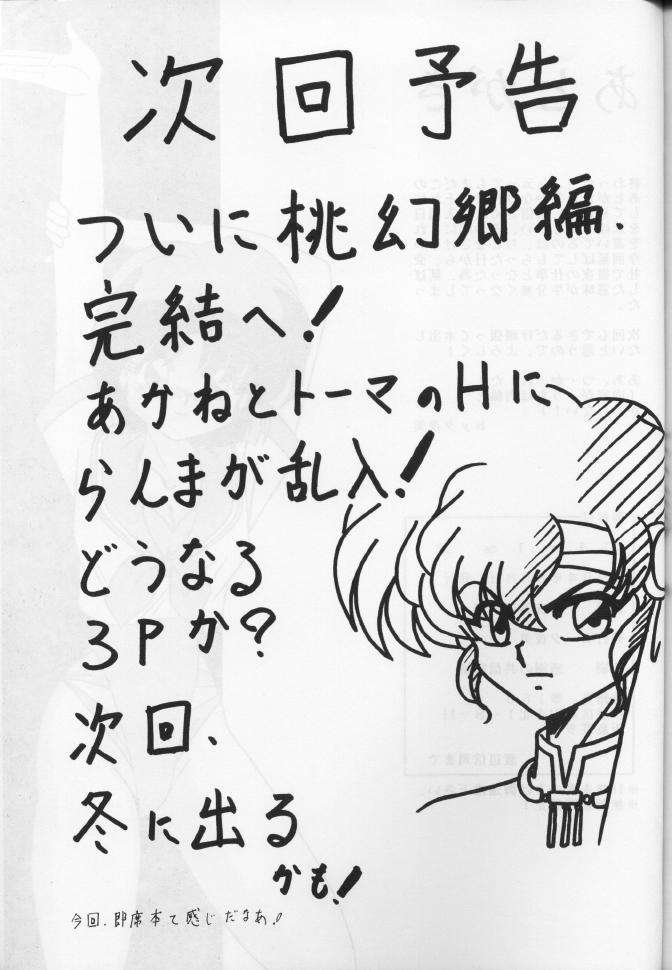 次回予告
ついに桃幻郷編、
完結へ!
あかねとトーマのHに
らんまが乱入!
どうなる
3Pか?
次回、
冬に出る
かも!
今回、即席本て感じだなあ!